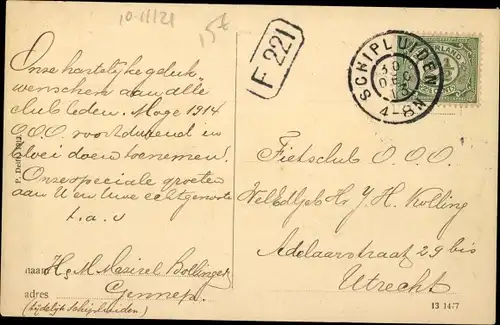 10-11/21
15t
F 221
SCHIPLUIDEN
30
DEC
13
4-8N
NEDERLAND
Onze hartelijke geluk
wenschen aan alle
clubleden. Moge 1914
O.O.O. voortdurend in
bloei doen toenemen.
Onze speciale groeten
aan U en Uwe echtgenoote
t.a.v
naam H. M. Masirel Bollinger
adres Gennep.
(tijdelijk Schipluiden)
Fietsclub O.O.O.
WelEdlGeb Hr J. H. Kolling
Adelaarstraat 29 bis
Utrecht
13 1477